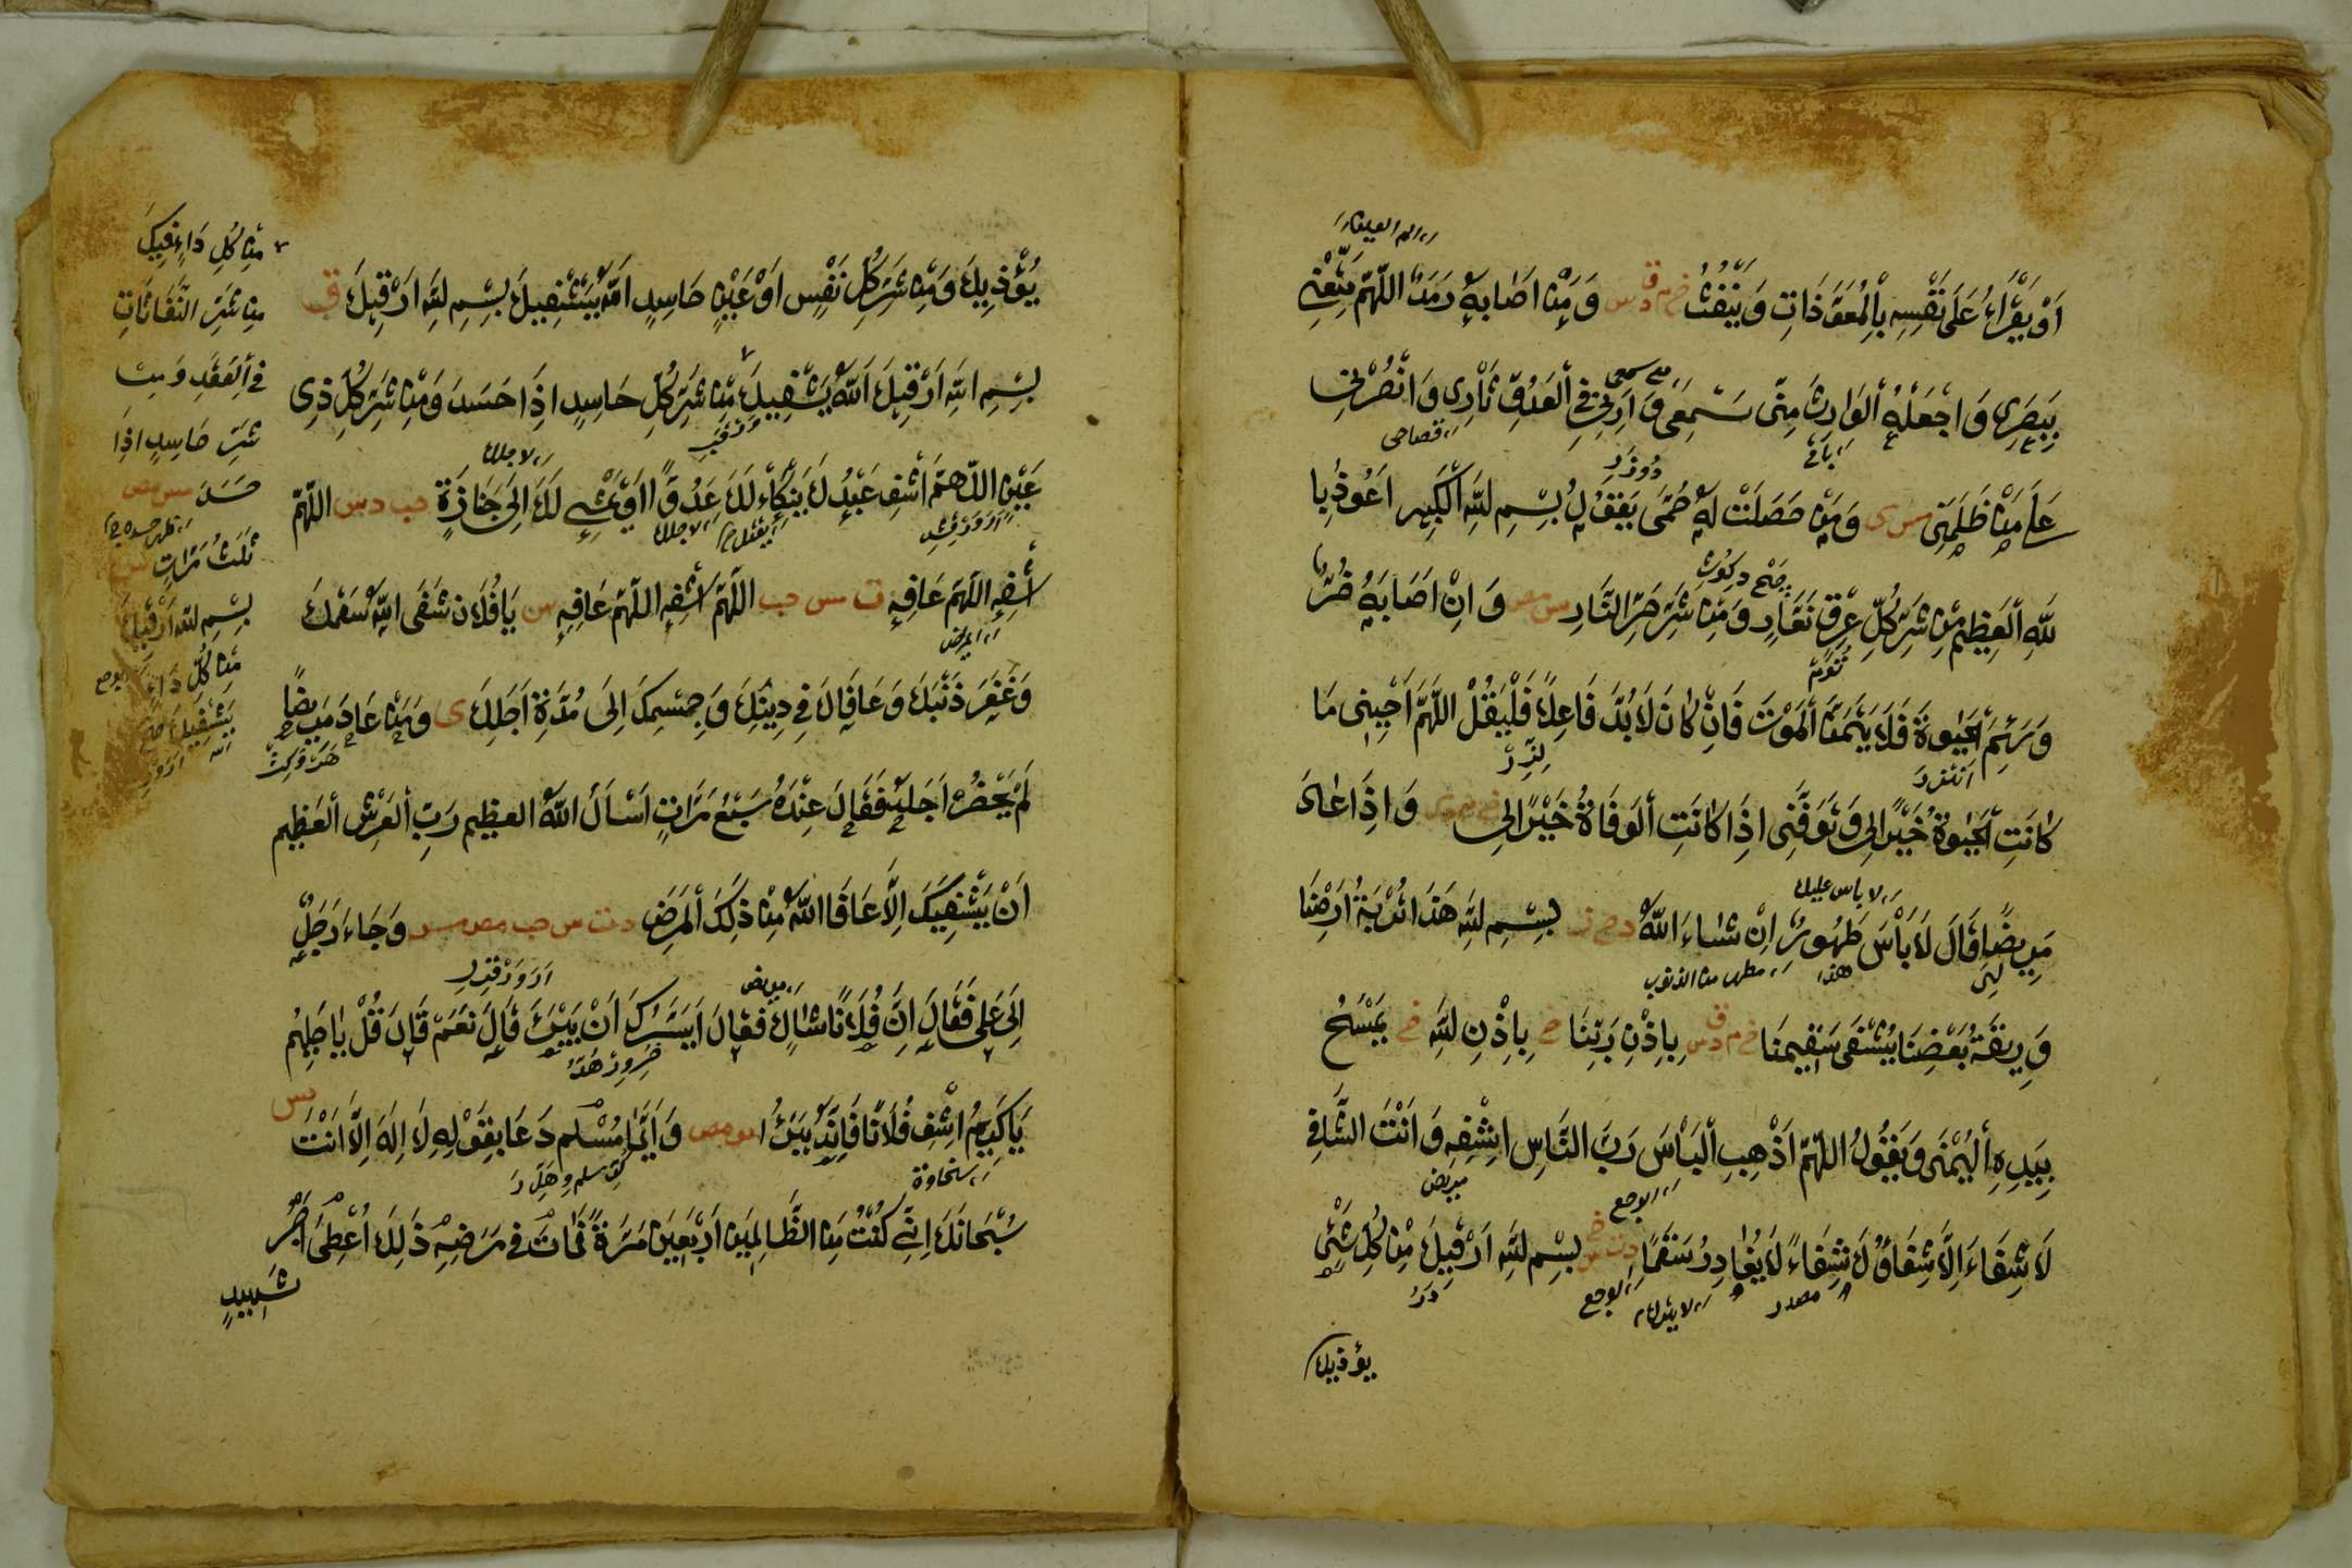 اَوْ يَقْرَاءُ عَلَى نَفْسِهِ بِالْمُعَوَّذَاتِ وَيَنْفُثُ خ م د ق س وَمَنْ اَصَابَهٗ رَمَدٌ اَللّٰهُمَّ مَتِّعْنِي
بِبَصَرِى وَاجْعَلْهُ الْوَارِثَ مِنِّى وَاَرِنِى فِى الْعَدُوِّ ثَأْرِى وَانْصُرْنِى
عَلَى مَنْ ظَلَمَنِى مس ى وَمَنْ حَصَلَتْ لَهٗ حُمّٰى يَقُولُ بِسْمِ اللّٰهِ الْكَبِيرِ اَعُوذُ بِا
للّٰهِ الْعَظِيمِ مِنْ شَرِّ كُلِّ عِرْقٍ نَعَّارٍ وَمِنْ شَرِّ حَرِّ النَّارِ مس مص وَاِنْ اَصَابَهٗ ضُرٌّ
وَسَئِمَ الْحَيٰوةَ فَلَا يَتَمَنَّ الْمَوْتَ فَاِنْ كَانَ لَابُدَّ فَاعِلًا فَلْيَقُلْ اَللّٰهُمَّ اَحْيِنِى مَا
كَانَتِ الْحَيٰوةُ خَيْرًا لِى وَتَوَفَّنِى اِذَا كَانَتِ الْوَفَاةُ خَيْرًا لِى وَاِذَا عَادَ
مَرِيضًا قَالَ لَا بَأْسَ طَهُورٌ اِنْ شَاءَ اللّٰهُ بِسْمِ اللّٰهِ هَذَا تُرْبَةُ اَرْضِنَا
وَرِيقَةُ بَعْضِنَا يُشْفٰى سَقِيمُنَا خ م د ق س بِاِذْنِ رَبِّنَا بِاِذْنِ اللّٰهِ خ يَمْسَحُ
بِيَدِهِ الْيُمْنَى وَيَقُولُ اَللّٰهُمَّ اَذْهِبِ الْبَأْسَ رَبَّ النَّاسِ اِشْفِهِ وَاَنْتَ الشَّافِى
لَا شِفَاءَ اِلَّا شِفَاؤُكَ شِفَاءً لَا يُغَادِرُ سَقَمًا بِسْمِ اللّٰهِ اَرْقِيكَ مِنْ كُلِّ شَىْءٍ
يؤذيك
يُؤْذِيكَ وَمِنْ شَرِّ كُلِّ نَفْسٍ اَوْ عَيْنٍ حَاسِدٍ اَللّٰهُ يَشْفِيكَ بِسْمِ اللّٰهِ اَرْقِيكَ ق
بِسْمِ اللّٰهِ اَرْقِيكَ اَللّٰهُ يَشْفِيكَ مِنْ شَرِّ كُلِّ حَاسِدٍ اِذَا حَسَدَ وَمِنْ شَرِّ كُلِّ ذِى
عَيْنٍ اَللّٰهُمَّ اشْفِ عَبْدَكَ يَنْكَاءُ لَكَ عَدُوًّا اَوْ يَمْشِى لَكَ اِلَى جَنَازَةٍ حب د مس اَللّٰهُمَّ
اشْفِهِ اَللّٰهُمَّ عَافِهِ ت س حب اَللّٰهُمَّ اشْفِهِ اَللّٰهُمَّ عَافِهِ يَا فُلَانُ شَفَى اللّٰهُ سَقَمَكَ
وَغَفَرَ ذَنْبَكَ وَعَافَاكَ فِى دِينِكَ وَجِسْمِكَ اِلَى مُدَّةِ اَجَلِكَ ى وَمَنْ عَادَ مَرِيضًا
لَمْ يَحْضُرْ اَجَلُهٗ فَقَالَ عِنْدَهٗ سَبْعَ مَرَّاتٍ اَسْأَلُ اللّٰهَ العظيم رَبَّ الْعَرْشِ الْعَظِيمِ
اَنْ يَشْفِيَكَ اِلَّا عَافَاهُ اللّٰهُ مِنْ ذٰلِكَ الْمَرَضِ د ت س حب مص مس وَجَاءَ رَجُلٌ
اِلَى عَلِىٍّ فَقَالَ اِنَّ فُلَانًا شَاكٍ فَقَالَ اَيَسُرُّكَ اَنْ يَبْرَءَ قَالَ نَعَمْ قَالَ قُلْ يَا حَلِيمُ
يَا كَرِيمُ اشْفِ فُلَانًا فَاِنَّهٗ يَبْرَأُ مو مص وَاَيُّمَا مُسْلِمٍ دَعَا بِقَوْلِهِ لَا اِلٰهَ اِلَّا اَنْتَ
سُبْحَانَكَ اِنِّى كُنْتُ مِنَ الظَّالِمِينَ اَرْبَعِينَ مَرَّةً فَمَاتَ فِى مَرَضِهِ ذٰلِكَ اُعْطِىَ اَجْرَ
شَهِيدٍ
مِنْ كُلِّ دَاءٍ فِيكَ
مِنْ شَرِّ النَّفَّاثَاتِ
فِى الْعُقَدِ وَمِنْ
شَرِّ حَاسِدٍ اِذَا
حَسَدَ مس مص
ثَلَثَ مَرَّاتٍ
بِسْمِ اللّٰهِ اَرْقِيكَ
مِنْ كُلِّ دَاءٍ
يَشْفِيكَ